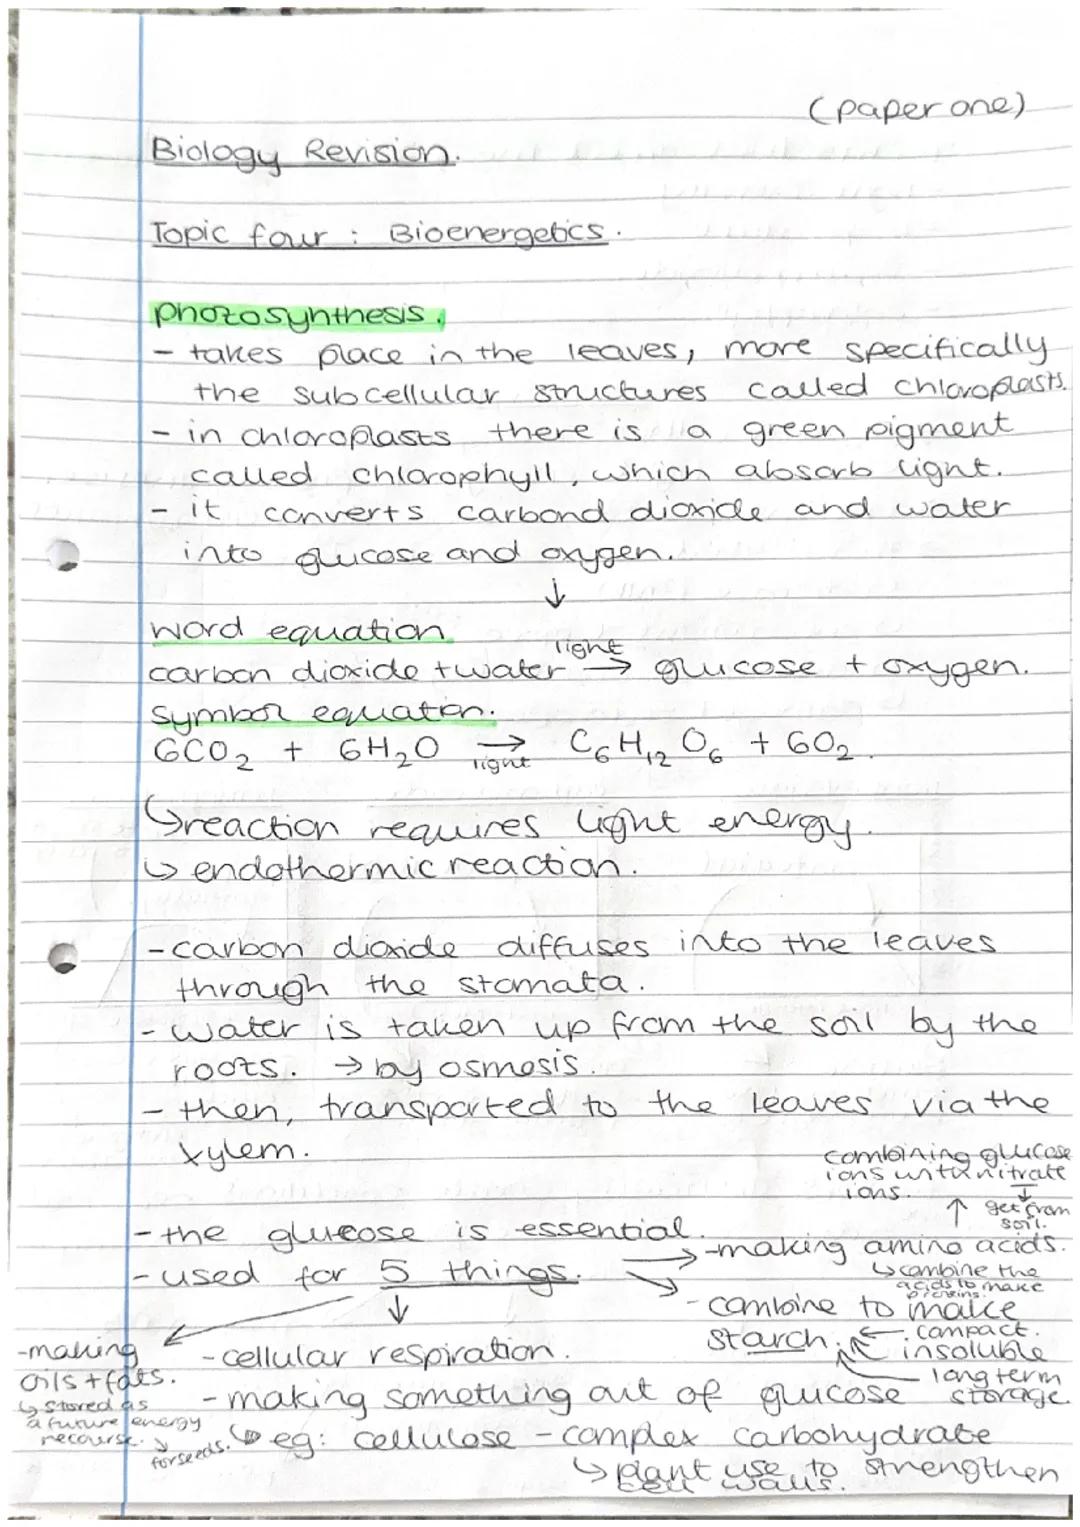 (paper one)
Biology Revision.
Topic four : Bioenergetics.
photosynthesis.
- takes place in the leaves, more specifically
the subcellular structures called chloroplasts.
- in chloroplasts there is a green pigment
called chlorophyll, which absorb light.
- it converts carbond dioxide and water
into glucose and oxygen.
↓
word equation
light
carbon dioxide + water → glucose + oxygen.
symbol equation.
6CO₂ + 6H₂O → C₆H₁₂O₆ + 6O₂.
light
↳ reaction requires light energy.
↳ endothermic reaction.
- carbon dioxide diffuses into the leaves
through the stomata.
- water is taken up from the soil by the
roots. → by osmosis.
- then, transported to the leaves via the
xylem.
combining glucose
ions with nitrate
ions.
↓
↑ get from
soil.
- the glucose is essential.
→ - making amino acids.
↳ combine the
acids to make
proteins.
- used for 5 things.
- combine to make
starch. ← compact.
insoluble
long term
storage.
- making
oils + fats.
↳ stored as
a future energy
recourse.
↘ for seeds.
- cellular respiration.
- making something out of glucose
↳ eg: cellulose - complex carbohydrate
↳ plant use to strengthen
cell walls.